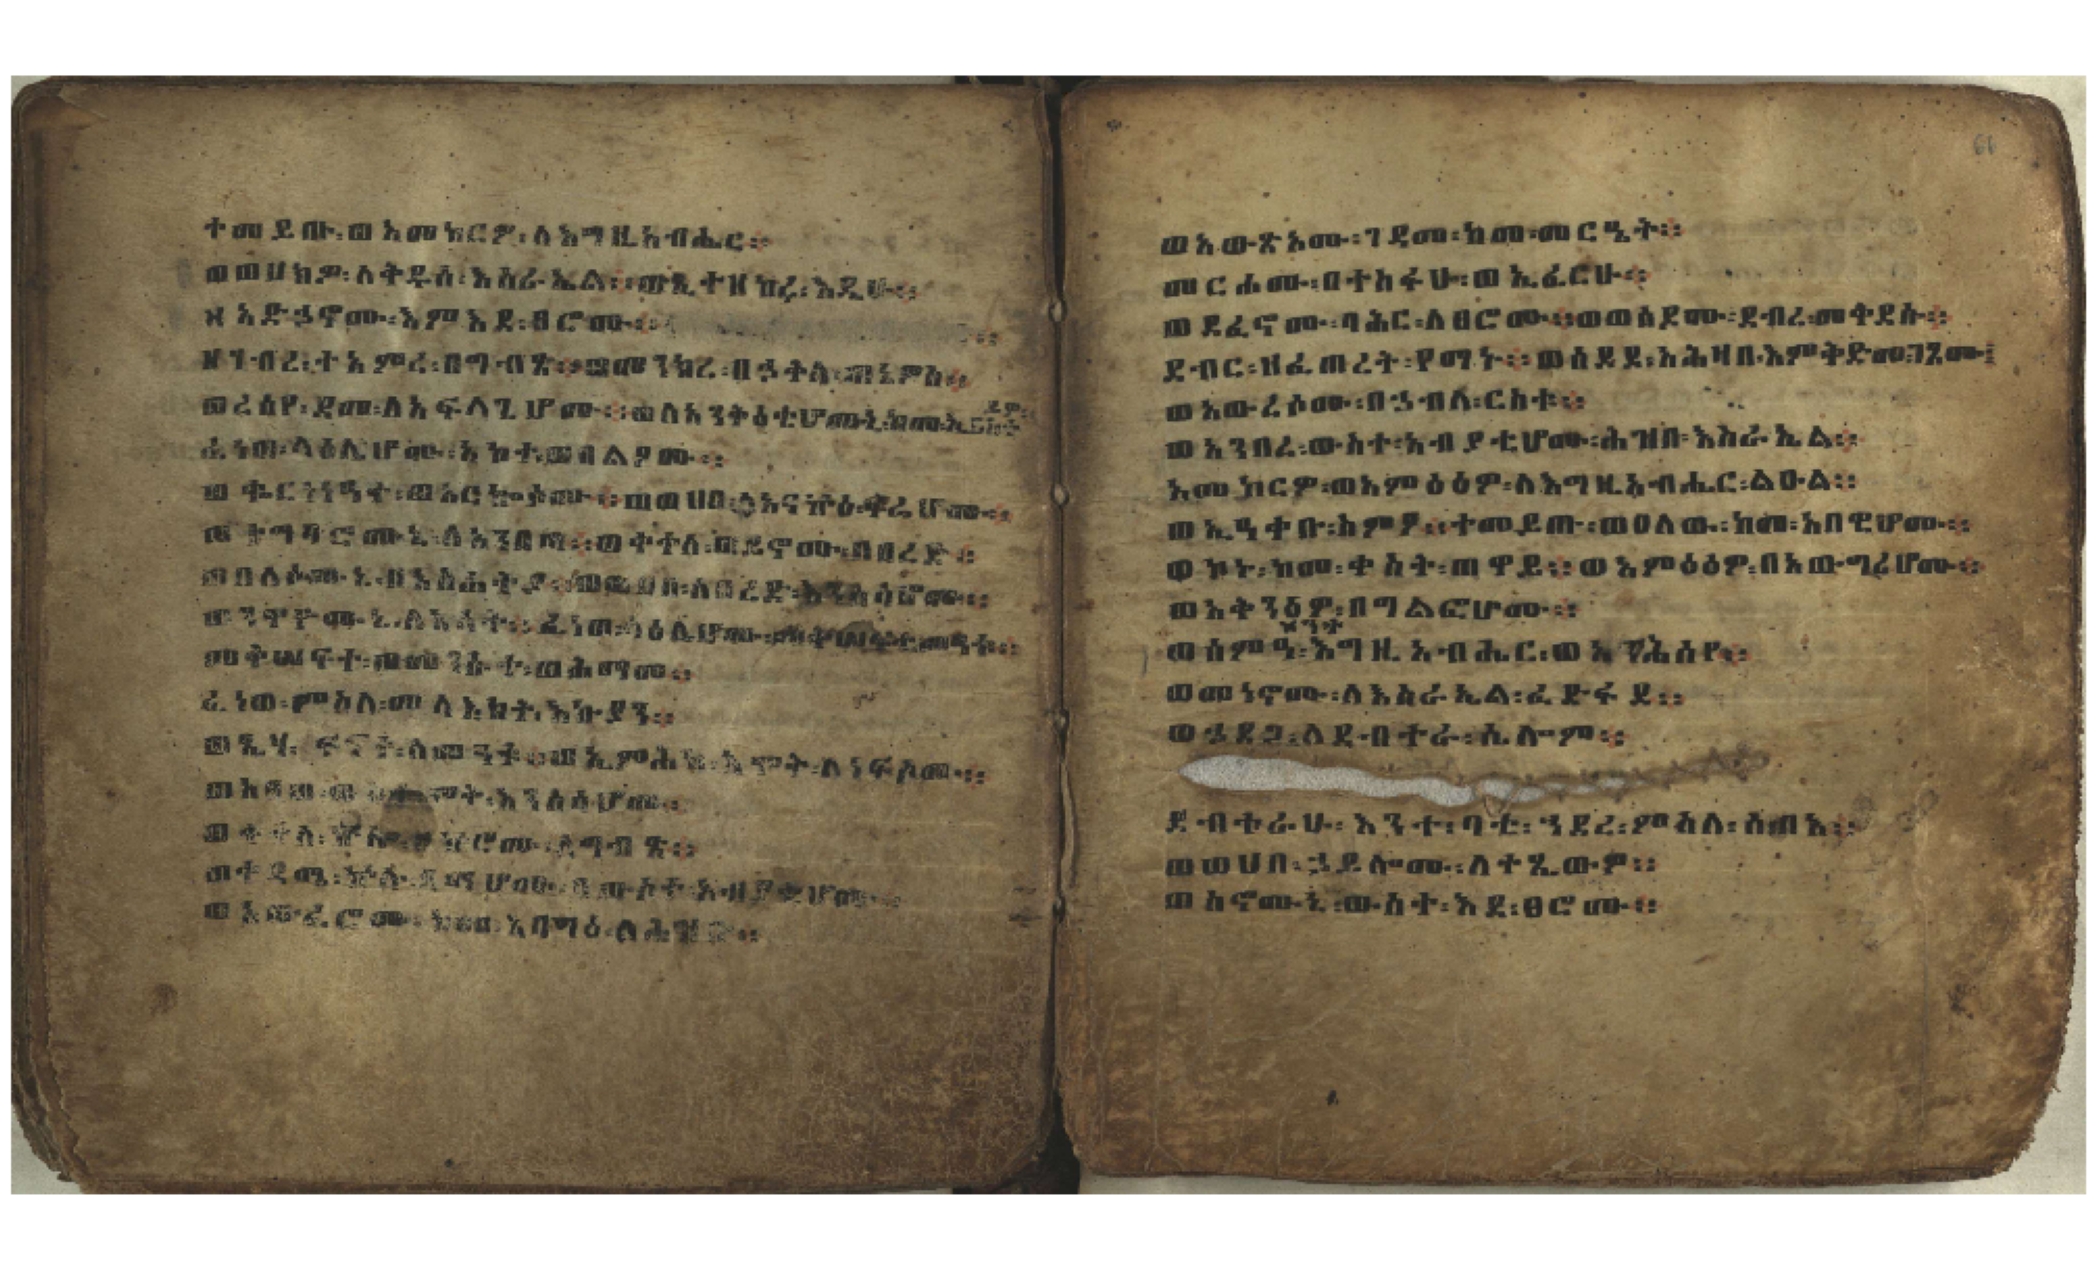 ተመይጡ፡ወአመከርዎ፡ለእግዚአብሔር።
ወወሀክዎ፡ለቅዱሰ፡እስራኤል።ወኢተዘከሩ፡እዴሁ።
ዘአድኃኖሙ፡እምእደ፡ፀሮሙ።
ዘገብረ፡ተአምረ፡በግብጽ።ወመንክረ፡በኃቅለ፡ጠኔዎስ።
ወረሰየ፡ደመ፡ለአፍላጊሆሙ።ወለአንቅዕቲሆሙኒ፡ከመ፡ኢይስተዩ
ፈነወ፡ላዕሌሆሙ፡አኮተ፡ወበልዖሙ።
ወቈርነነዓተ፡ወአርኰሶሙ።ወወሀበ፡ለአናኵዕ፡ፍሬሆሙ።
ወተግባሮሙኒ፡ለአንበጣ።ወቀተለ፡ወይኖሙ፡በበረድ።
ወበለሶሙኒ፡በአስሐትያ።ወወሀበ፡ለበረድ፡እንስሳሆሙ።
ወንዋዮሙኒ፡ለእሳት።ፈነወ፡ላዕሌሆሙ፡መቅሠፍተ፡መዓቱ።
መቅሠፍተ፡ወመንሱተ፡ወሕማመ።
ፈነወ፡ምስለ፡መላእክት፡እኩያን።
ወጼሃ፡ፍኖተ፡ለመዓቱ።ወኢምሕከ፡እሞት፡ለነፍሶሙ።
ወቀተለ፡ኵሎ፡በኵሮሙ፡ለግብጽ።
ወአውፈሮሙ፡ከመ፡አባግዕ፡ለሕዝቡ።
ወአውጽአሙ፡ገዳመ፡ከመ፡መርዔት።
መርሐሙ፡በተስፋሁ፡ወኢፈርሁ።
ወደፈኖሙ፡ባሕር፡ለፀሮሙ።ወወሰደሙ፡ደብረ፡መቅደሱ።
ደብር፡ዘፈጠረት፡የማኑ።ወሰደደ፡አሕዛበ፡እምቅድመ፡ገጾሙ።
ወአውረሶሙ፡በኃብለ፡ርስቱ።
ወአንበረ፡ውስተ፡አብያቲሆሙ፡ሕዝበ፡እስራኤል።
አመከርዎ፡ወአምዕዕዎ፡ለእግዚአብሔር፡ልዑል።
ወኢዓቀቡ፡ስምዖ።ተመይጡ፡ወዐለዉ፡ከመ፡አበዊሆሙ።
ወኮኑ፡ከመ፡ቀስት፡ጠዋይ።ወአምዕዕዎ፡በአውግሪሆሙ።
ወአቅንዕዎ፡በግልፎሆሙ።
ዘንተ
ወሰምዓ፡እግዚአብሔር፡ወአኀሕሰየ።
ወመነኖሙ፡ለእስራኤል፡ፈድፋደ።
ወኃደጋ፡ለደብተራ፡ሴሎም።
ደብተራሁ፡እንተ፡ባቲ፡ኀደረ፡ምስለ፡ሰብእ።
ወወሀበ፡ኃይሎሙ፡ለተፄውዎ።
ወስኖሙኒ፡ውስተ፡እደ፡ፀሮሙ።